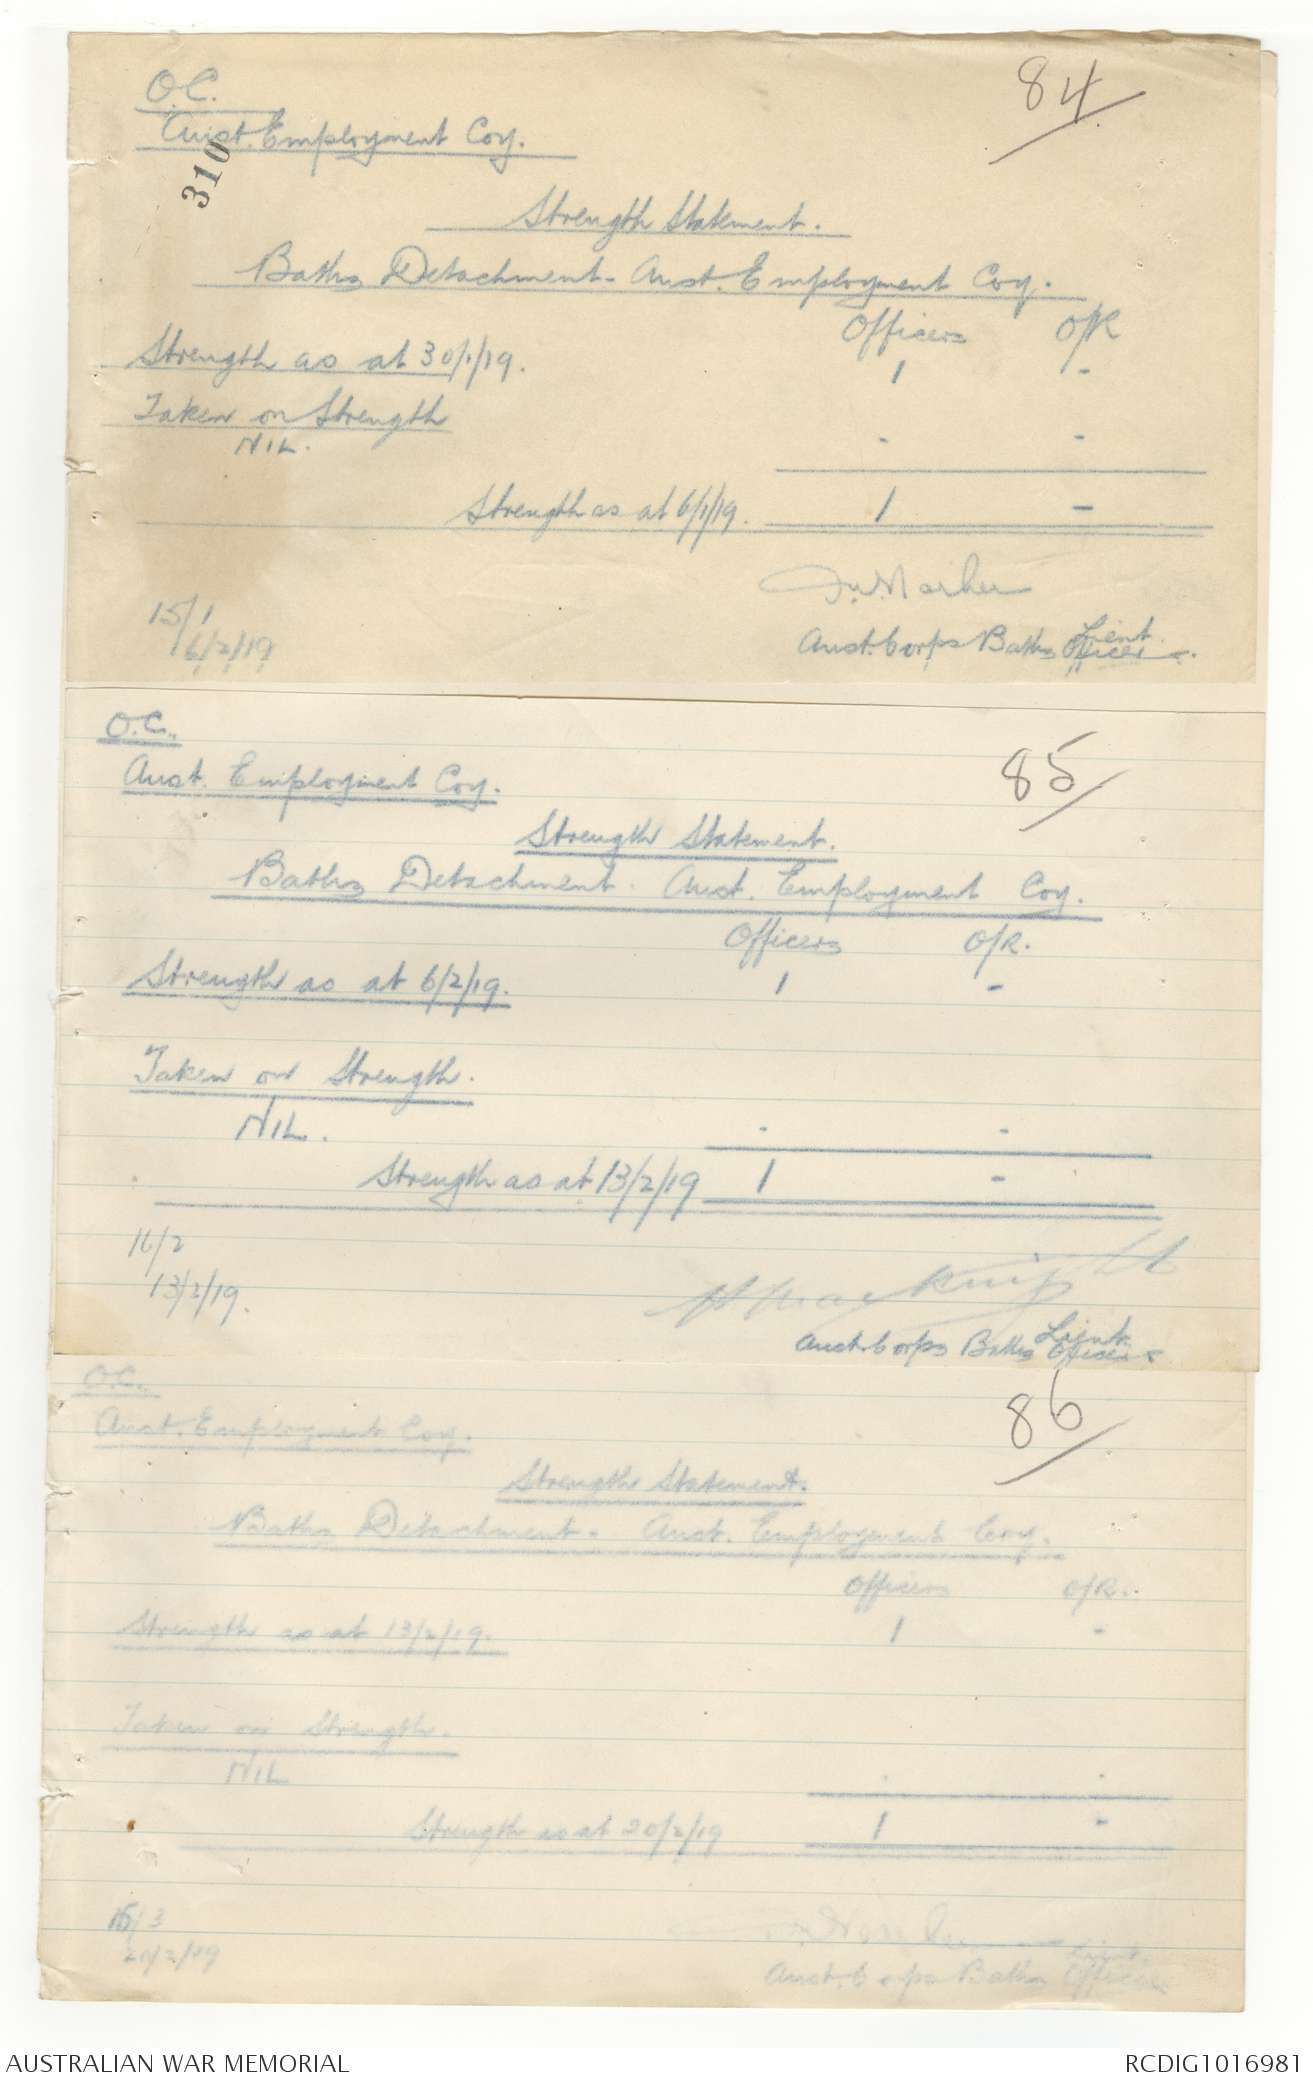 84
O.C.
Aust. Employment Coy.
310
Strength Statement.
Baths Detachment - Aust. Employment Coy.
Officers O/R
Strength as at 30/1/19. 1 -
Taken on Strength
NIL. - -
Strength as at 6/1/19. 1 -
15/1
6/2/19
Lieut.
Aust. Corps Baths Officer.
O.C.,
85
Aust. Employment Coy.
Strength Statement.
Baths Detachment. Aust. Employment Coy.
Officers O/R.
Strength as at 6/2/19. 1 -
Taken on Strength.
NIL. - -
Strength as at 13/2/19 1 -
16/2
13/2/19.
Macknight
Lieut.
Aust. Corps Baths Officer
O.C.
86
Aust. Employment Coy.
Strength Statement.
Baths Detachment - Aust. Employment Coy.
Officers O/R.
Strength as at 13/2/19. 1 -
Taken on Strength.
NIL - -
Strength as at 20/2/19 1 -
20/2/19
Lieut.
Aust. Corps Baths Officer
AUSTRALIAN WAR MEMORIAL
RCDIG1016981